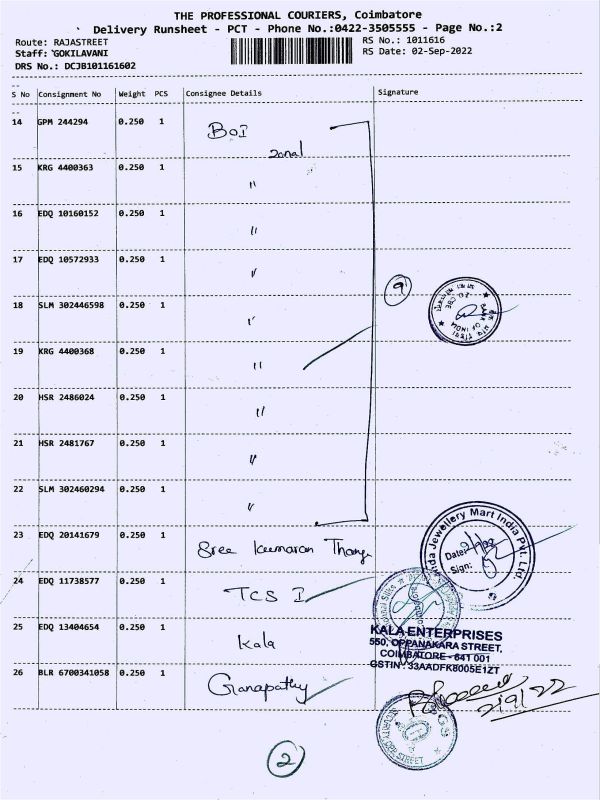 THE PROFESSIONAL COURIERS, Coimbatore
Delivery Runsheet - PCT - Phone No.:0422-3505555 - Page No.:2
Route: RAJASTREET
Staff: GOKILAVANI
DRS No.: DCJB101161602
RS No.: 1011616
RS Date: 02-Sep-2022
S No Consignment No Weight PCS Consignee Details Signature
14 GPM 244294 0.250 1 BOI
zonal
15 KRG 4400363 0.250 1 "
16 EDQ 10160152 0.250 1 "
17 EDQ 10572933 0.250 1 "
9
18 SLM 302446598 0.250 1 "
19 KRG 4400368 0.250 1 "
20 HSR 2486024 0.250 1 "
21 HSR 2481767 0.250 1 "
22 SLM 302460294 0.250 1 "
23 EDQ 20141679 0.250 1 Sree Kumaran Thanga
Jewellery Mart India Pvt. Ltd.
Date:
Sign:
24 EDQ 11738577 0.250 1 TCS I
25 EDQ 13404654 0.250 1 Kala
KALA ENTERPRISES
550, OPPANAKARA STREET,
COIMBATORE - 641 001
GSTIN: 33AADFK8005E1ZT
26 BLR 6700341058 0.250 1 Ganapathy
2/9/22
2